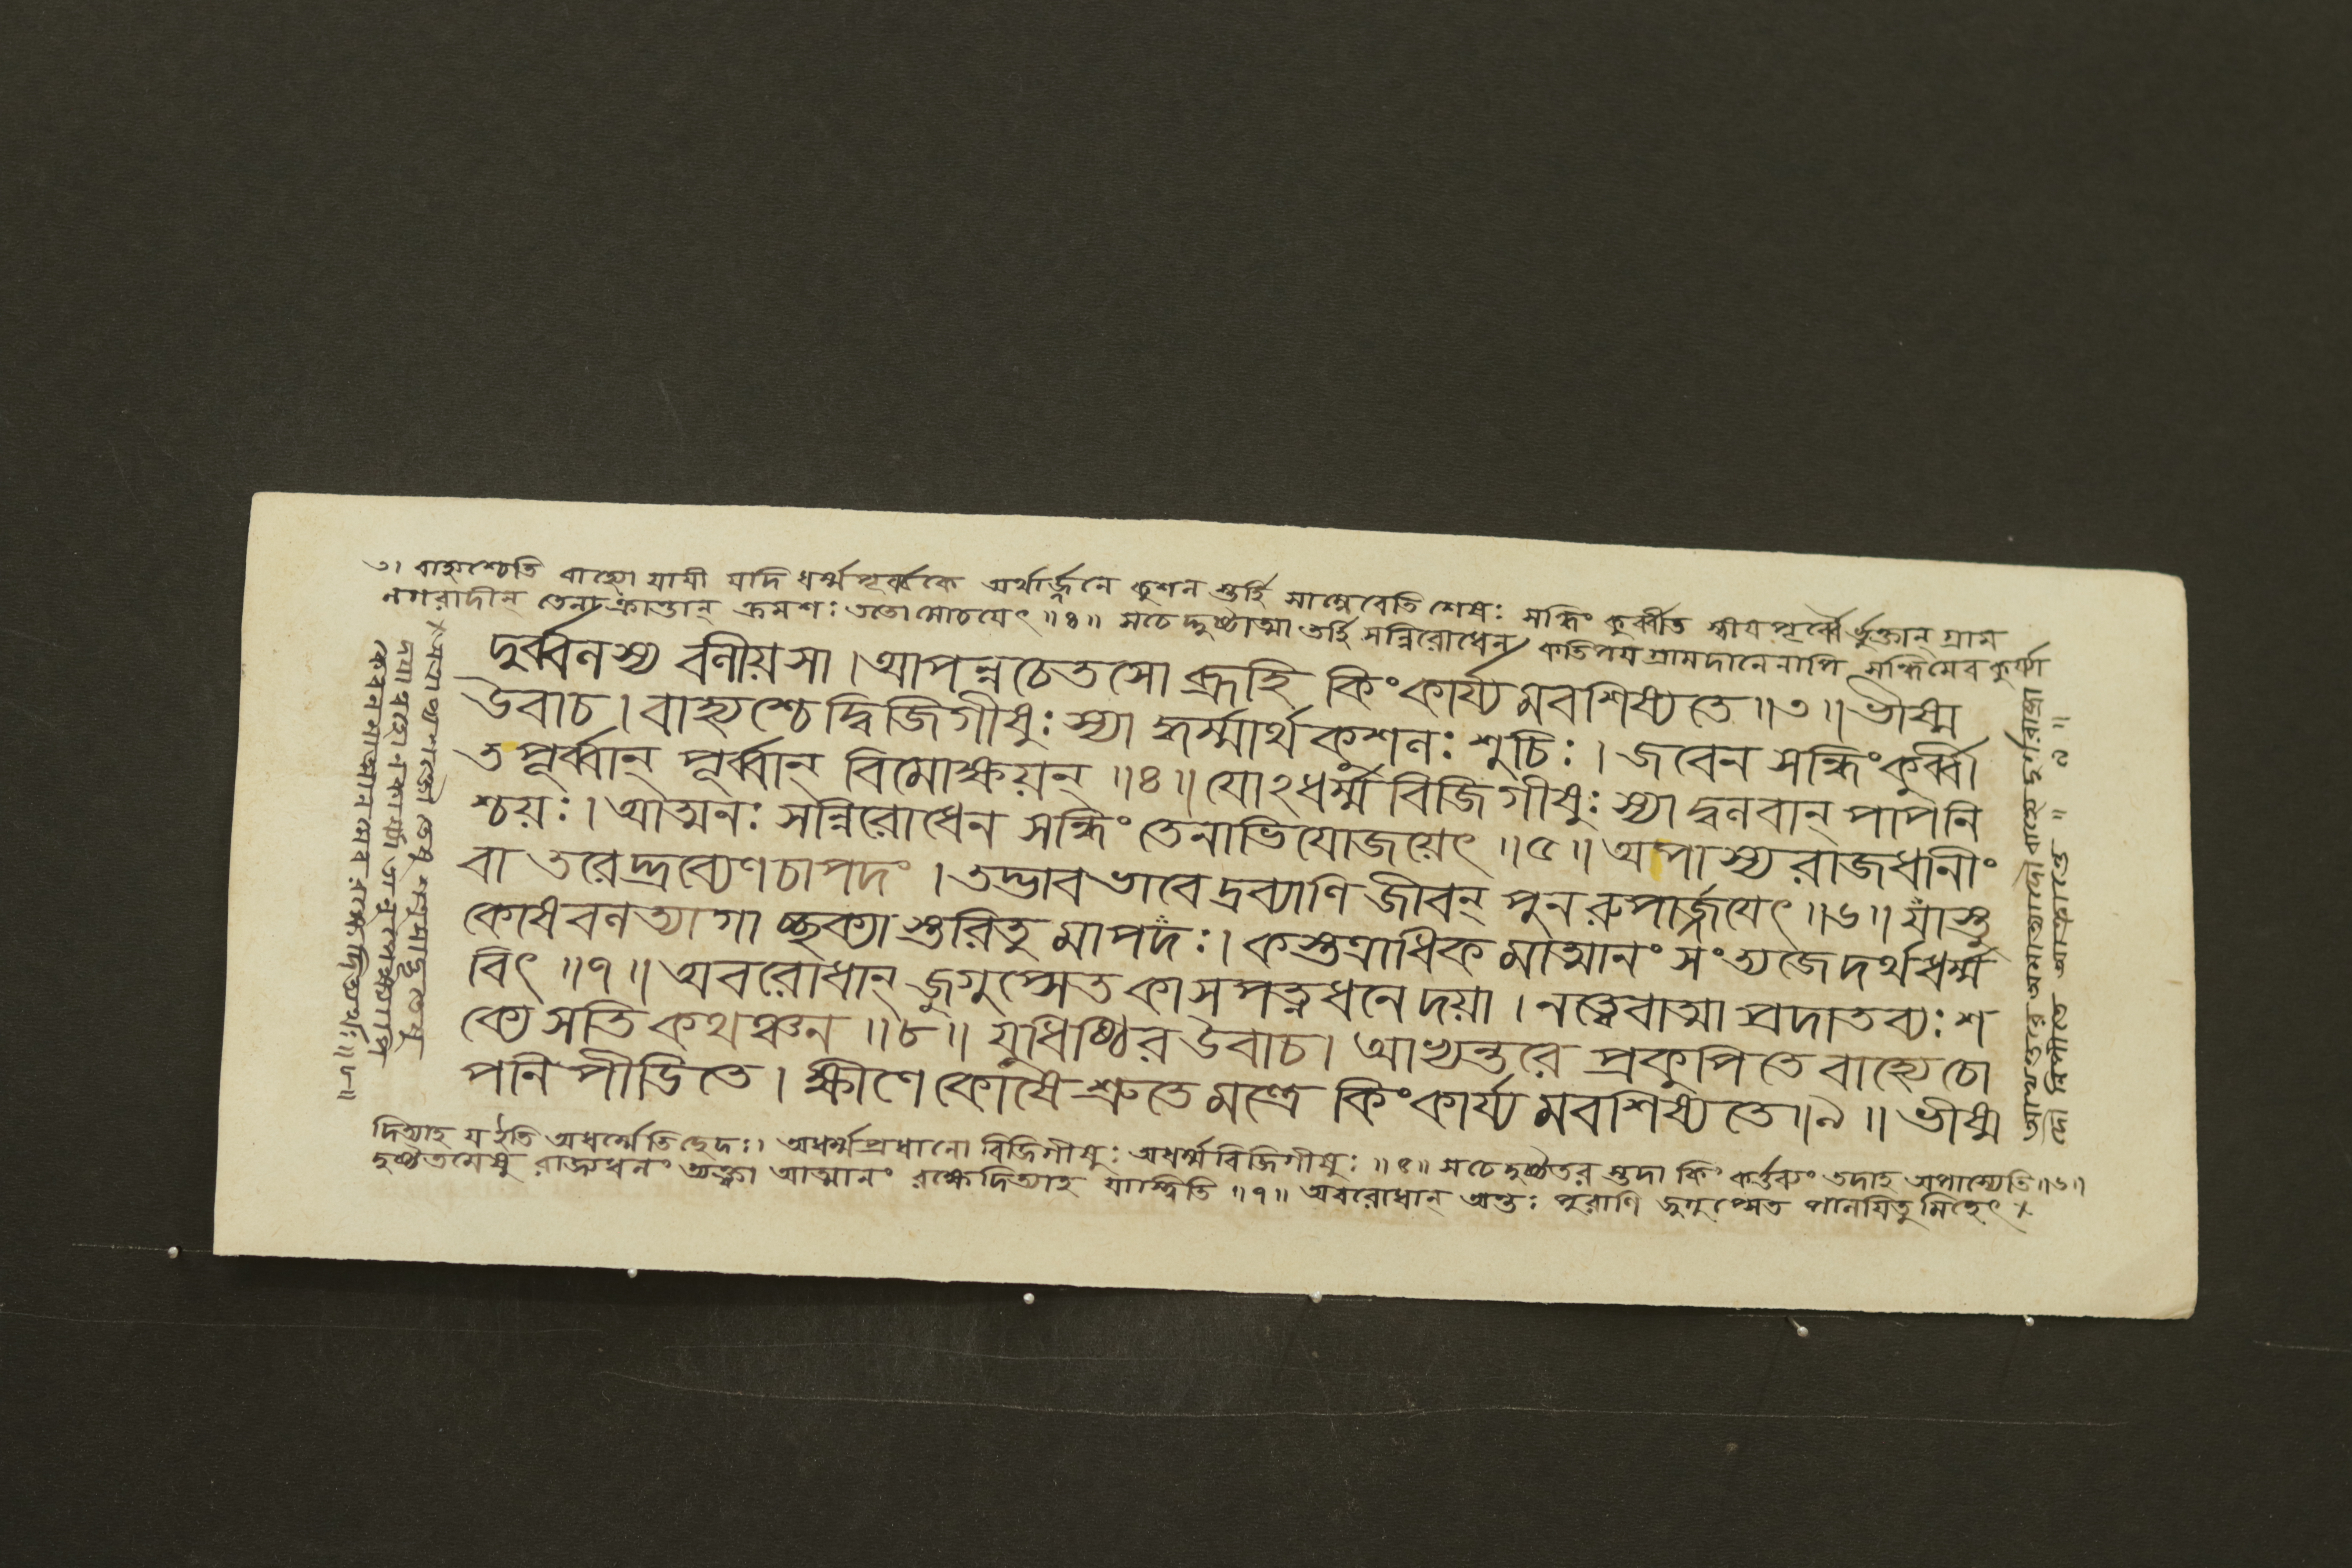 ৩। বাহ্যশ্চেতি বাহ্যো যায়ী যদি ধর্ম্মপূর্ব্বকে অর্থার্জ্জনে কুশল স্তর্হি সাম্নৈবেতি শেষঃ সন্ধিং কুর্ব্বীত স্বীয়পূর্ব্বৈর্ভুক্তান্ গ্রাম
নগরাদীন্ তেনাক্রান্তান্ ক্রমশঃ ততো মোচয়েৎ ॥৪॥ সচেদ্দুষ্টাত্মা তর্হি সন্নিরোধেন কতিপয়গ্রামদানেনাপি সন্ধিমেব কুর্য্যা
দুর্ব্বলস্য বলীয়সা । আপন্নচেতসো ব্রূহি কিংকার্য্যমবশিষ্যতে ॥৩॥ ভীষ্ম
উবাচ । বাহ্যশ্চেদ্বিজিগীষুঃ স্যাদ্ধর্ম্মার্থকুশলঃ শুচিঃ । জবেন সন্ধিংকুর্ব্বী
ত পূর্ব্বান্ পূর্ব্বান্ বিমোক্ষয়ন্ ॥৪॥ যোঽধর্ম্মবিজিগীষুঃ স্যাদ্বলবান্ পাপনি
শ্চয়ঃ । আত্মনঃ সন্নিরোধেন সন্ধিং তেনাভিযোজয়েৎ ॥৫॥ অপাস্য রাজধানীং
বা তরেদ্দ্রব্যেণচাপদং । তদ্ভাবভাবে দ্রব্যাণি জীবন্ পুনরুপার্জ্জয়েৎ ॥৬॥ যাস্তু
কোষবলত্যাগাচ্ছক্যাস্তরিতুমাপদঃ । কস্তত্রাধিকমাত্মানং সংত্যজেদর্থধর্ম্ম
বিৎ ॥৭॥ অবরোধান্ জুগুপ্সেত কাসপত্নধনে দয়া । নত্বেবাত্মা প্রদাতব্যঃ শ
ক্যে সতি কথঞ্চন ॥৮॥ যুধিষ্ঠির উবাচ । আভ্যন্তরে প্রকুপিতে বাহ্যে চো
পনিপীডিতে । ক্ষীণে কোষে শ্রুতে মন্ত্রে কিংকার্য্যমবশিষ্যতে ॥৯॥ ভীষ্ম
দিত্যাহ য ইতি অধর্ম্মেতি ছেদঃ। অধর্ম্মপ্রধানো বিজিগীষুঃ অধর্ম্মবিজিগীষুঃ ॥৫॥ সচেদ্দুষ্টতর স্তদা কিং কর্ত্তব্যং তদাহ অপাস্যেতি ॥৬॥
দুষ্টতমেষু রাজ্যধনং ত্যক্ত্বা আত্মানং রক্ষেদিত্যাহ যাস্ত্বিতি ॥৭॥ অবরোধান্ অন্তঃপুরাণি জুগুপ্সেত পালয়িতুমিচ্ছেৎ ×
দয়া ন কার্য্যা
কেবলমাত্মানমেব রক্ষেদিত্যর্থঃ ॥৮॥
আভ্যন্তরে অমাত্যাদৌ বাহ্যে দুর্গরাষ্ট্রা
দৌ নিপীডিতে আক্রান্তে ॥ ৯ ॥